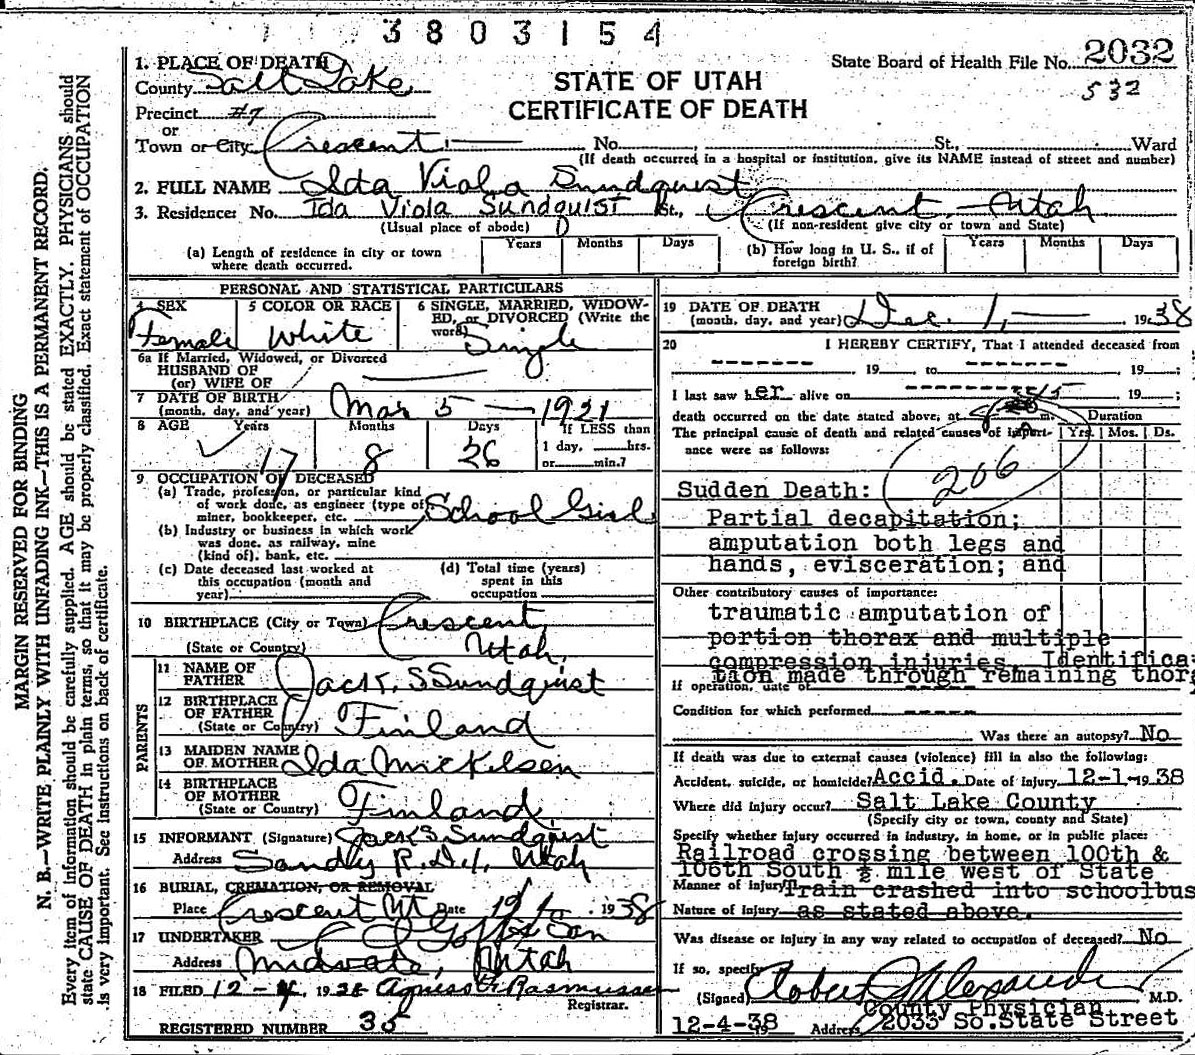 3803154
1. PLACE OF DEATH
State Board of Health File No. 2032
532
County Salt Lake
STATE OF UTAH
CERTIFICATE OF DEATH
Precinct #7
or
Town or City Crescent No. St., Ward
(If death occurred in a hospital or institution, give its NAME instead of street and number)
2. FULL NAME Ida Viola Sundquist
3. Residence: No. Ida Viola Sundquist St., Crescent, Utah
(Usual place of abode) (If non-resident give city or town and State)
(a) Length of residence in city or town where death occurred. Years Months Days
(b) How long in U. S., if of foreign birth? Years Months Days
PERSONAL AND STATISTICAL PARTICULARS
4 SEX Female
5 COLOR OR RACE White
6 SINGLE, MARRIED, WIDOWED, or DIVORCED (Write the word) Single
6a If Married, Widowed, or Divorced
HUSBAND OF
(or) WIFE OF
7 DATE OF BIRTH
(month, day, and year) Mar 5 — 1921
8 AGE Years Months Days If LESS than
17 8 26 1 day, hrs.
or min.?
9 OCCUPATION OF DECEASED
(a) Trade, profession, or particular kind
of work done, as engineer (type of
miner, bookkeeper, etc. School Girl
(b) Industry or business in which work
was done, as railway, mine
(kind of), bank, etc.
(c) Date deceased last worked at
this occupation (month and
year)
(d) Total time (years)
spent in this
occupation
10 BIRTHPLACE (City or Town) Crescent,
(State or Country) Utah.
PARENTS
11 NAME OF
FATHER Jack S Sundquist
12 BIRTHPLACE
OF FATHER
(State or Country) Finland
13 MAIDEN NAME
OF MOTHER Ida Mickelsen
14 BIRTHPLACE
OF MOTHER
(State or Country) Finland
15 INFORMANT (Signature) Jack S Sundquist
Address Sandy R.D.#1, Utah
16 BURIAL, CREMATION, OR REMOVAL
Place Crescent Ut Date 1938
17 UNDERTAKER Goff & Son
Address Midvale, Utah
18 FILED 12-4, 1938 Rasmussen
Registrar.
REGISTERED NUMBER 35
19 DATE OF DEATH
(month, day, and year) Dec. 1, — 1938
20 I HEREBY CERTIFY, That I attended deceased from
------- 19 to -------- 19 ;
I last saw her alive on ---------- 19 ;
death occurred on the date stated above, at m. Duration
The principal cause of death and related causes of import- Yrs. Mos. Ds.
ance were as follows:
206
Sudden Death:
Partial decapitation;
amputation both legs and
hands, evisceration; and
Other contributory causes of importance:
traumatic amputation of
portion thorax and multiple
compression injuries. Identifica-
tion made through remaining thor
If operation, date of -----
Condition for which performed -----
Was there an autopsy? No
If death was due to external causes (violence) fill in also the following:
Accident, suicide, or homicide? Accid. Date of Injury 12-1-1938
Where did injury occur? Salt Lake County
(Specify city or town, county and State)
Specify whether injury occurred in industry, in home, or in public place:
Railroad crossing between 100th &
106th South ½ mile west of State
Manner of injury Train crashed into schoolbus
Nature of Injury as stated above.
Was disease or injury in any way related to occupation of deceased? No
If so, specify
(Signed) Robert Alexander M.D.
County Physician
12-4-38 Address 2033 So. State Street
MARGIN RESERVED FOR BINDING
N. B.—WRITE PLAINLY WITH UNFADING INK—THIS IS A PERMANENT RECORD.
Every item of information should be carefully supplied. AGE should be stated EXACTLY. PHYSICIANS should
state CAUSE OF DEATH in plain terms, so that it may be properly classified. Exact statement of OCCUPATION
is very important. See instructions on back of certificate.